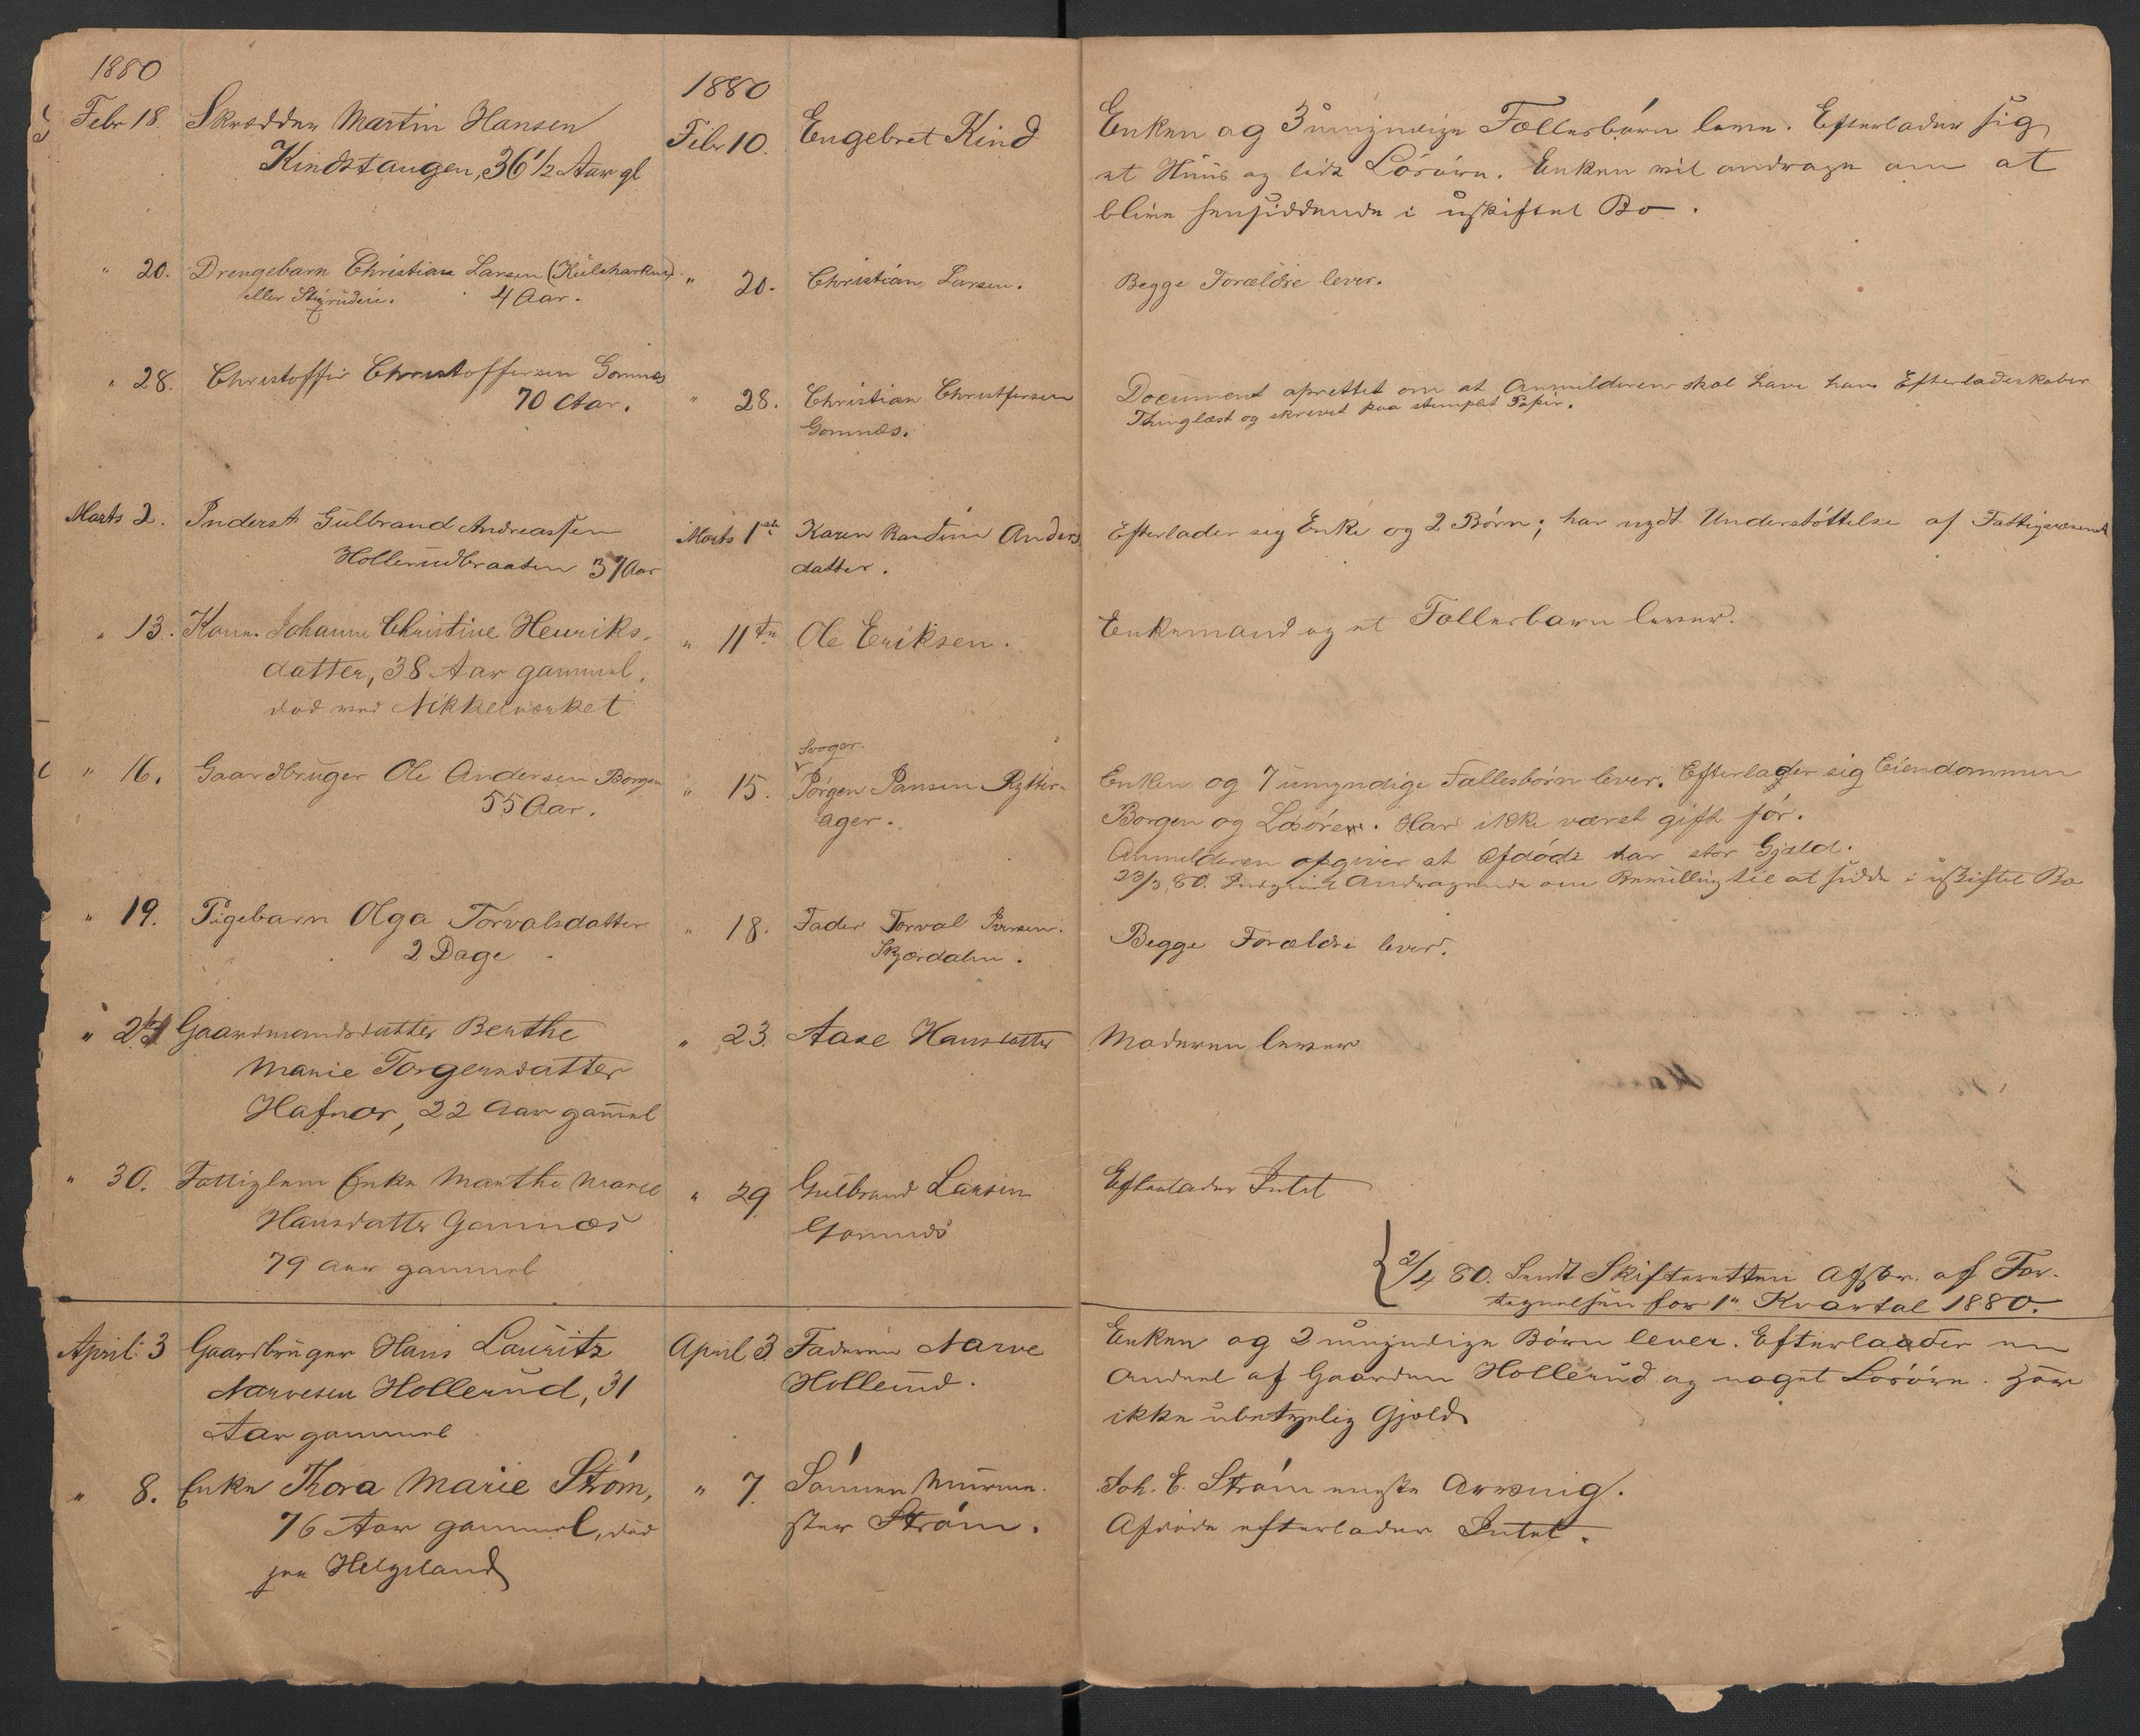 1880
1880
Febr 18. Skrædder Martin Hansen
Kindstangen, 36 1/2 Aar gl
Febr 10. Engebret Kind
Enken og 3 umyndige Fællesbørn leve. Efterlader sig
et Huus og lidt Løsøre. Enken vil andrage om at
blive hensiddende i uskiftet Bo.
" 20. Drengebarn Christian Larsen
eller 4 Aar.
" 20. Christian Larsen.
Begge Forældre lever.
" 28. Christoffer Christoffersen Gomnæs
70 Aar.
" 28. Christian Christfersen
Gomnæs.
Document oprettet om at Anmelderen skal have hans Efterladeskaber
Thinglæst og skrevet paa stemplet Papir.
Marts 2. Inderst Gulbrand Andreassen
Hollerudbraaten 37 Aar
Marts 1ste Karen Randine Anders
datter.
Efterlader sig Enke og 2 Børn; har nydt Understøttelse af Fattigvæsenet
" 13. Kone Johanne Christine Henriks-
datter, 38 Aar gammel,
død ved Nikkelværket
" 11te Ole Eriksen.
Enkemand og et Fællesbarn lever.
" 16. Gaardbruger Ole Andersen Borgen
55 Aar.
Svoger
" 15. Jørgen Jansen Rytter-
ager.
Enken og 7 umyndige Fællesbørn lever. Efterlader sig Eiendommen
Borgen og Løsøre. Har ikke været gift før.
Anmelderen opgiver at Afdøde har stor Gjæld.
23/3, 80. Indgivet Andragende om Bevilling til at sidde i uskiftet Bo
" 19. Pigebarn Olga Torvalsdatter
2 Dage
" 18. Fader Torval Iversen.
Skjærdalen.
Begge Forældre lever.
" Gaardmandsdatter Berthe
Marie Torgersdatter
Hafnor, 22 Aar gam̄el
" 23. Aase Hansdatter
Moderen lever
" 30. Fattiglem Enke Marthe Marie
Hansdatter Gomnæs
79 Aar gammel
" 29 Gulbrand Larsen
Gomnæs
Efterlader Intet
2/4 80. Sendt Skifteretten Afskr. af For-
tegnelsen for 1ste Kvartal 1880.
April: 3 Gaardbruger Hans Lauritz
Narvesen Hollerud, 31
Aar gammel
April 3. Faderen Narve
Hollerud.
Enken og 2 umyndige Børn lever. Efterlader en
Andeel af Gaarden Hollerud og noget Løsøre. Har
ikke ubetydelig Gjæld
" 8. Enke Thora Marie Strøm,
76 Aar gammel, død
paa Helgeland
" 7. Sønnen Murme-
ster Strøm.
Joh. E. Strøm eneste Arving.
Afdøde efterlader Intet.